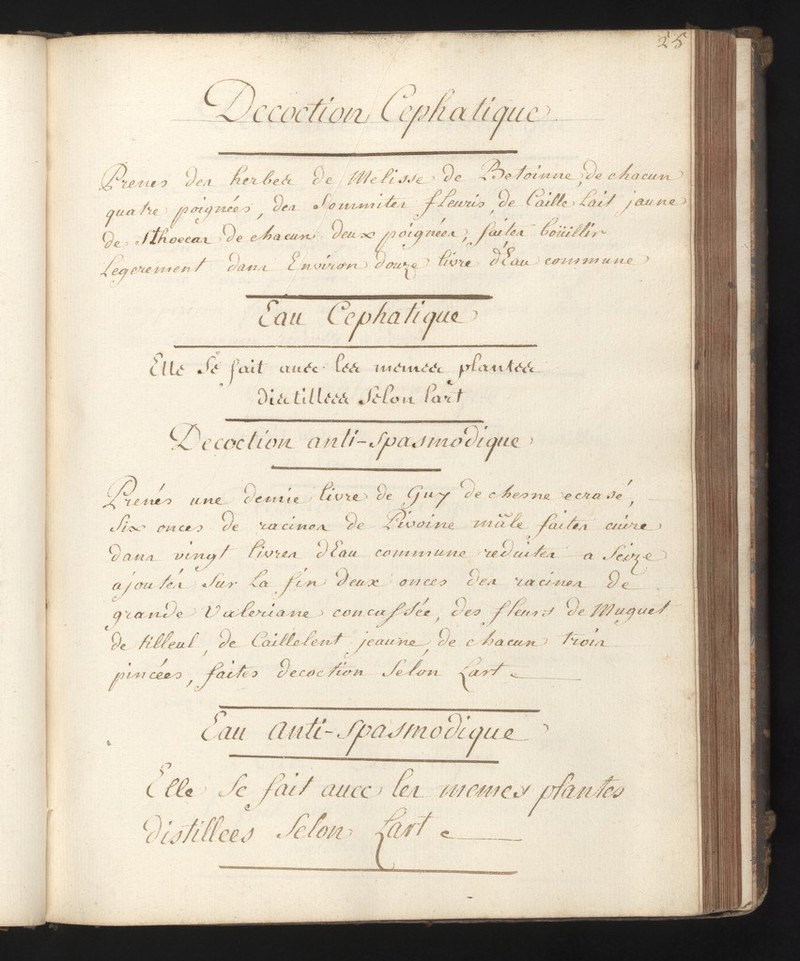 25
Decoction Cephatique
Prenes des herbes de Melisse de Betoinne, de chacun
quatre poignées, des Sommites fleuris, de Caille Lait jaune
de Sthoecas de chacuns deux poignées, faites boüillir
Legerement dans Environ douze livre d'Eau commune
Eau Cephatique
Elle Se fait avec les memes plantes
distillées Selon l'art
Decoction anti-Spasmodique
Prenés une demie livre de Guy de chesne ecrasé,
Six onces de racines de Pivoine mâle faites cuire
dans vingt livres d'Eau commune reduites a Seize
ajoutés Sur La fin deux onces des racines de
grande Valeriane concassée, des fleurs de Muguet
de tilleul, de Caillelent jeaune, de chacun trois
pincées, faites decoction Selon Lart
Eau anti-Spasmodique
Elle Se fait avec les memes plantes
distillees Selon Lart